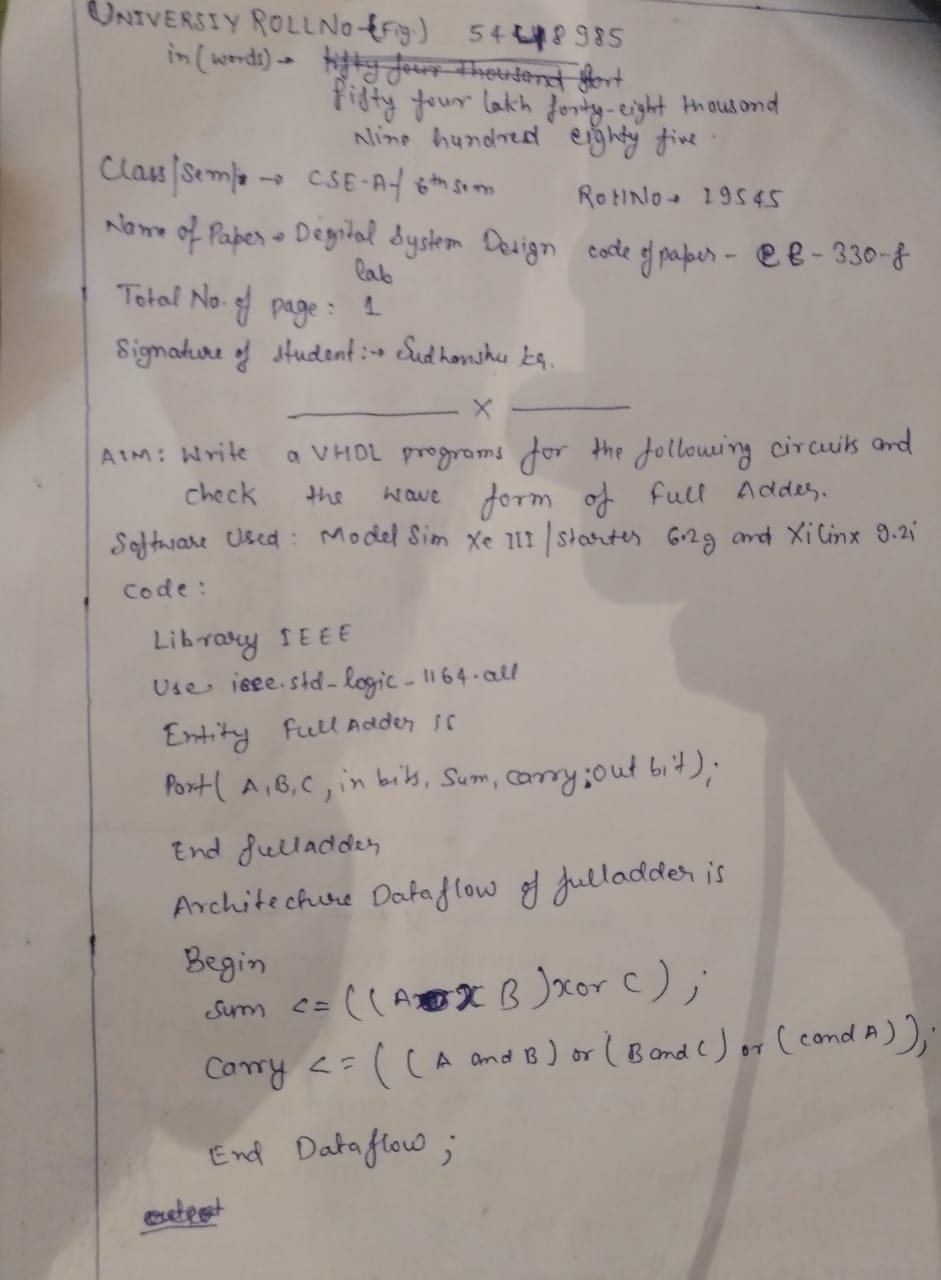 UNIVERSIY ROLLNo-(Fig.) 5448985
in (words) → fifty four thousand fort
fifty four lakh forty-eight thousand
Nine hundred eighty five.
Class/Sem → CSE-A/ 6th sem
RollNo → 19545
Name of Paper → Degital System Design code of paper - - 330-f
lab
Total No. of page : 1
Signature of student :→ Sudhanshu
X
AIM: Write a VHDL programs for the following circuits and
check the wave form of full Adder.
Software Used : Model Sim Xe III / Starter 6.2g and Xilinx 9.2i
Code :
Library IEEE
Use ieee.std-logic-1164.all
Entity full Adder is
Port( A,B,C, in bits, Sum, carry;out bit);
End fulladder
Architechure Dataflow of fulladder is
Begin
Sum <= ((A X B )xor C ) ;
Carry <= ( ( A and B ) or ( B and C ) or ( C and A ) );
End Dataflow ;
output